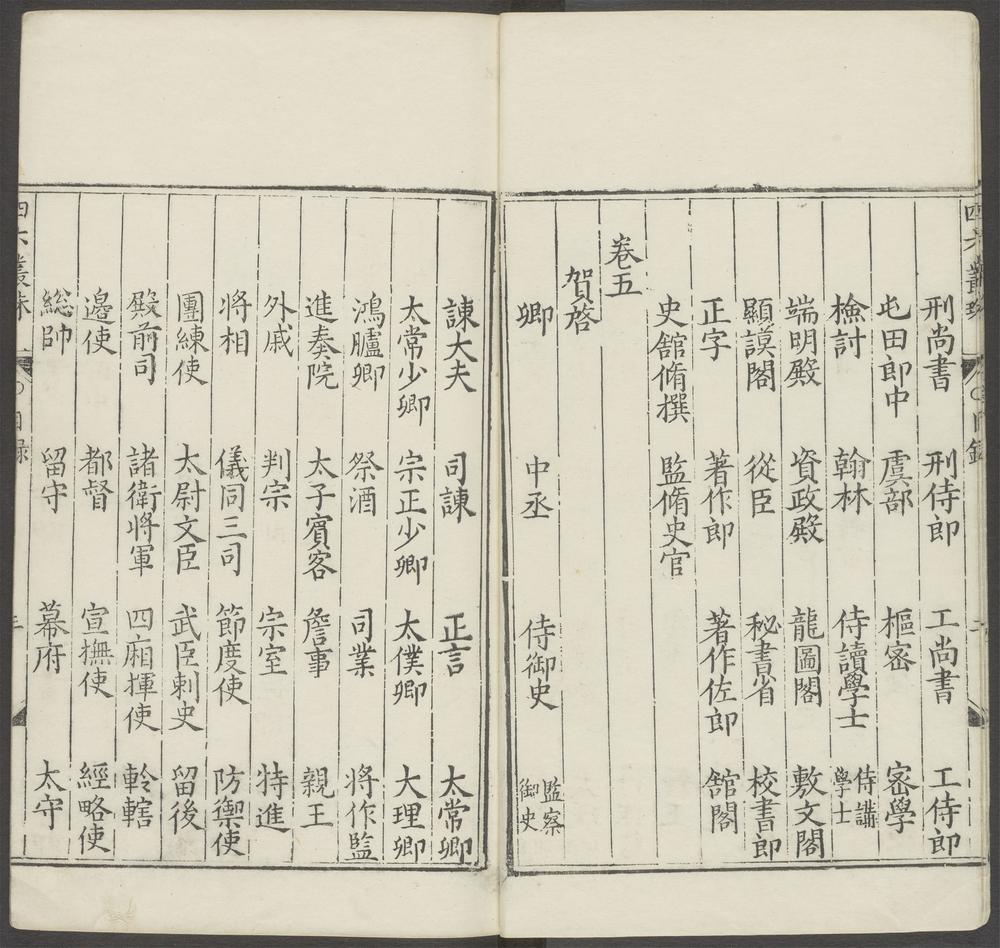 刑尚書 刑侍郎 工尚書 工侍郎
屯田郎中 虞部 樞密 密學
檢討 翰林 侍讀學士 侍講學士
端明殿 資政殿 龍圖閣 敷文閣
顯謨閣 從臣 秘書省 校書郎
正字 著作郎 著作佐郎 舘閣
史舘脩撰 監脩史官
卷五
賀啓
卿 中丞 侍御史 監察御史
諫大夫 司諫 正言 太常卿
太常少卿 宗正少卿 太僕卿 大理卿
鴻臚卿 祭酒 司業 將作監
進奏院 太子賓客 詹事 親王
外戚 判宗 宗室 特進
將相 儀同三司 節度使 防禦使
團練使 太尉文臣 武臣剌史 留後
殿前司 諸衛將軍 四廂揮使 軨轄
邊使 都督 宣撫使 經略使
総帥 留守 幕府 太守
四六叢珠 目録